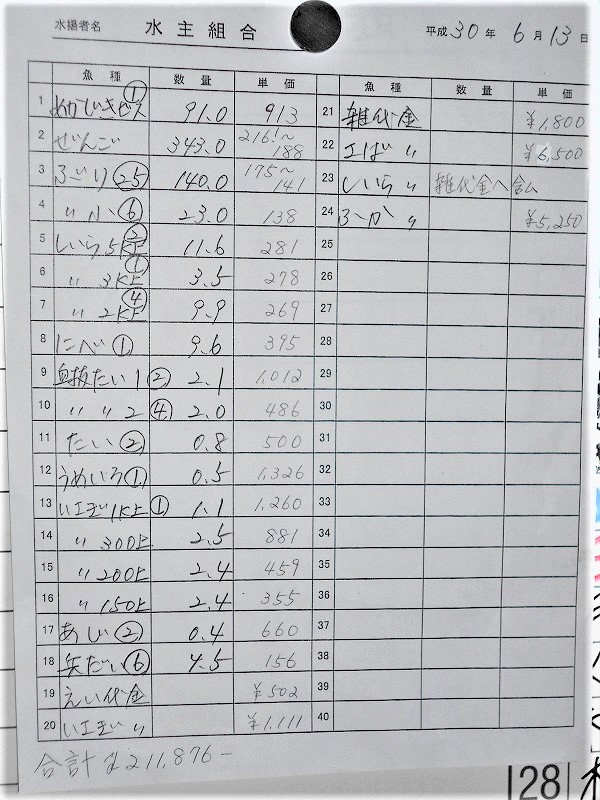 水揚者名 水主組合 平成30年6月13日
魚種 数量 単価 魚種 数量 単価
1 めかじきピス① 91.0 913
2 ぜんご 343.0 216!~188
3 ぶり㉕ 140.0 175~141
4 〃小⑥ 23.0 138
5 しいら5K上② 11.6 281
6 〃3K上① 3.5 278
7 〃2K上④ 9.9 269
8 にべ① 9.6 395
9 血抜たい1② 2.1 1,012
10 〃〃2④ 2.0 486
11 たい② 0.8 500
12 うめいろ① 0.5 1,326
13 いエぎ1K上① 1.1 1,260
14 〃300上 2.5 881
15 〃200上 2.4 459
16 〃150上 2.4 355
17 あじ② 0.4 660
18 矢だい⑥ 4.5 156
19 えい代金 ¥502
20 いエぎ〃 ¥1,111
21 雑代金 ¥1,800
22 エば〃 ¥6,500
23 しいら〃 雑代金へ含ム
24 ふか〃 ¥5,250
25
26
27
28
29
30
31
32
33
34
35
36
37
38
39
40
合計¥211,876-
128